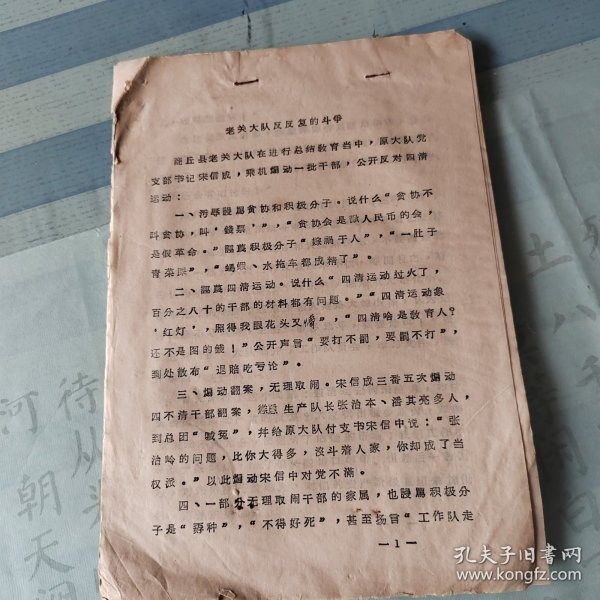 老关大队反反复的斗争
商丘县老关大队在进行总结教育当中，原大队党
支部书记宋信成，乘机煽动一批干部，公开反对四清
运动：
一、污辱謾骂贫协和积极分子。说什么“贫协不
叫贫协，叫‘ ’”，“贫协会是 人民币的会，
是假革命。” 积极分子“嫁祸于人”，“一肚子
青菜屎”，“ 、水拖车都成精了”。
二、 四清运动。说什么“四清运动过火了，
百分之八十的干部的材料都有问题。”“四清运动象
‘红灯’，照得我眼花头又 ”，“四清啥是教育人？
还不是图的 ！”公开声言“要打不罰，要罰不打”，
到处散布“退賠吃亏论”。
三、煽动翻案，无理取闹。宋信成三番五次煽动
四不清干部翻案， 生产队长张治本、潘其亮多人，
到总团“喊冤”，并给原大队付支书宋信中说：“张
治岭的问题，比你大得多，沒斗着人家，你却成了当
权派。”以此煽动宋信中对党不满。
四、一部分无理取闹干部的家属，也謾骂积极分
子是“ 种”，“不得好死”，甚至扬言“工作队走
—1—
孔夫子旧书网
www.kongfz.com
河
朝
天
待
从
头
土
八